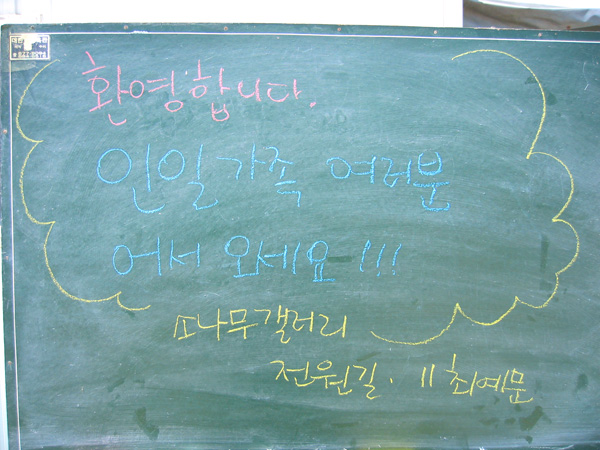 환영합니다.
인일가족 여러분
어서 오세요!!!
소나무갤러리
전원길. 11 최예문